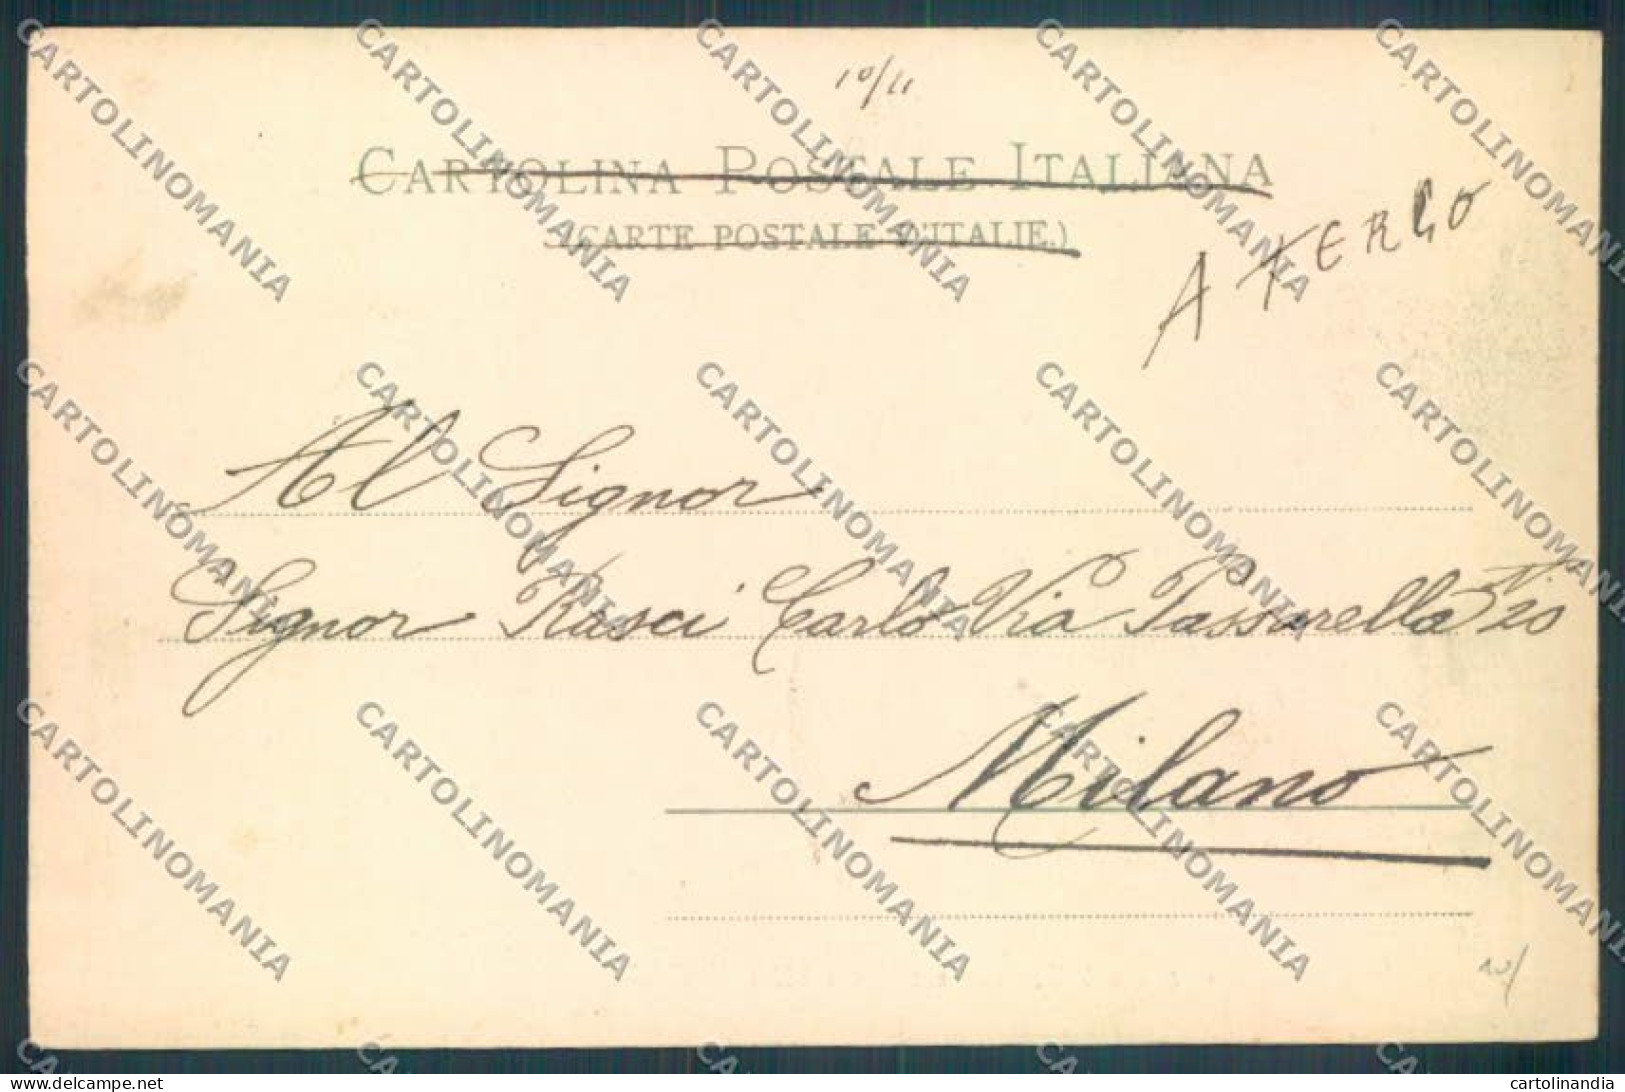 10/11
CARTOLINA POSTALE ITALIANA
(CARTE POSTALE D'ITALIE.)
A TERGO
Al Signor
Signor Rasci Carlo Via Passarella N 20
Milano
10/
www.delcampe.net
cartolinandia
CARTOLINOMANIA